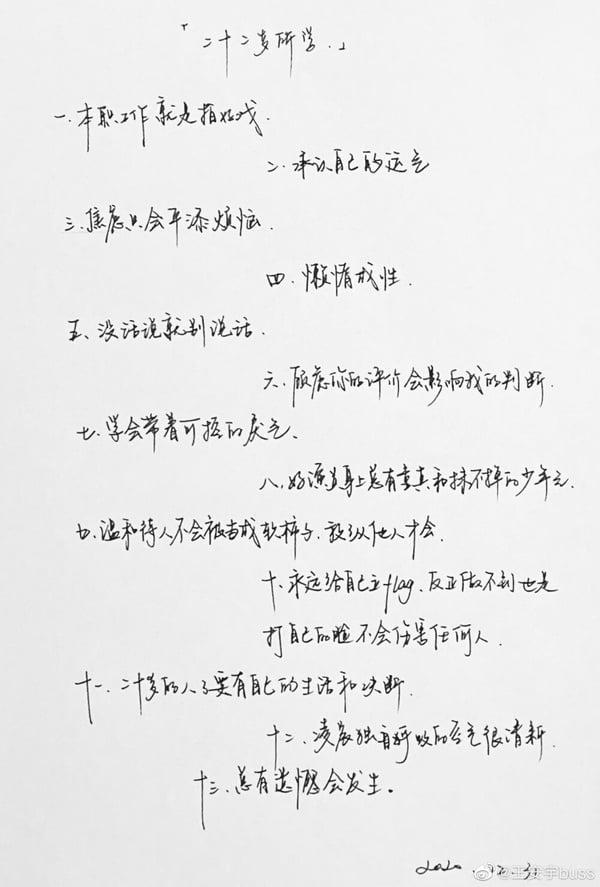 「二十二岁所学.」
一.本职工作就是拍好戏.
二.承认自己的运气
三.焦虑只会平添烦恼.
四.懒惰成性.
五、没话说就别说话.
六.顾虑你的评价会影响我的判断.
七.学会带着可控的戾气、
八.好演员身上总有童真和抹不掉的少年气.
九.温和待人不会被当成软柿子、放纵他人才会.
十.永远给自己立flag、反正做不到也是
打自己的脸不会伤害任何人.
十一.二十多的人了要有自己的生活和决断.
十二.凌晨独自呼吸的空气很清新.
十三.总有遗憾会发生。
2020.
@王安宇buss